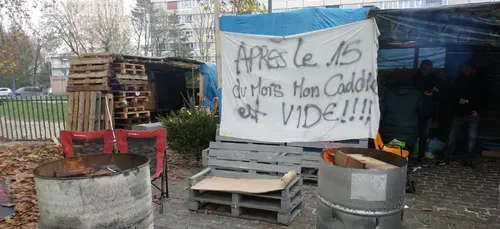 APRÈS le 15
du Mois Mon Caddie
est VIDE!!!!